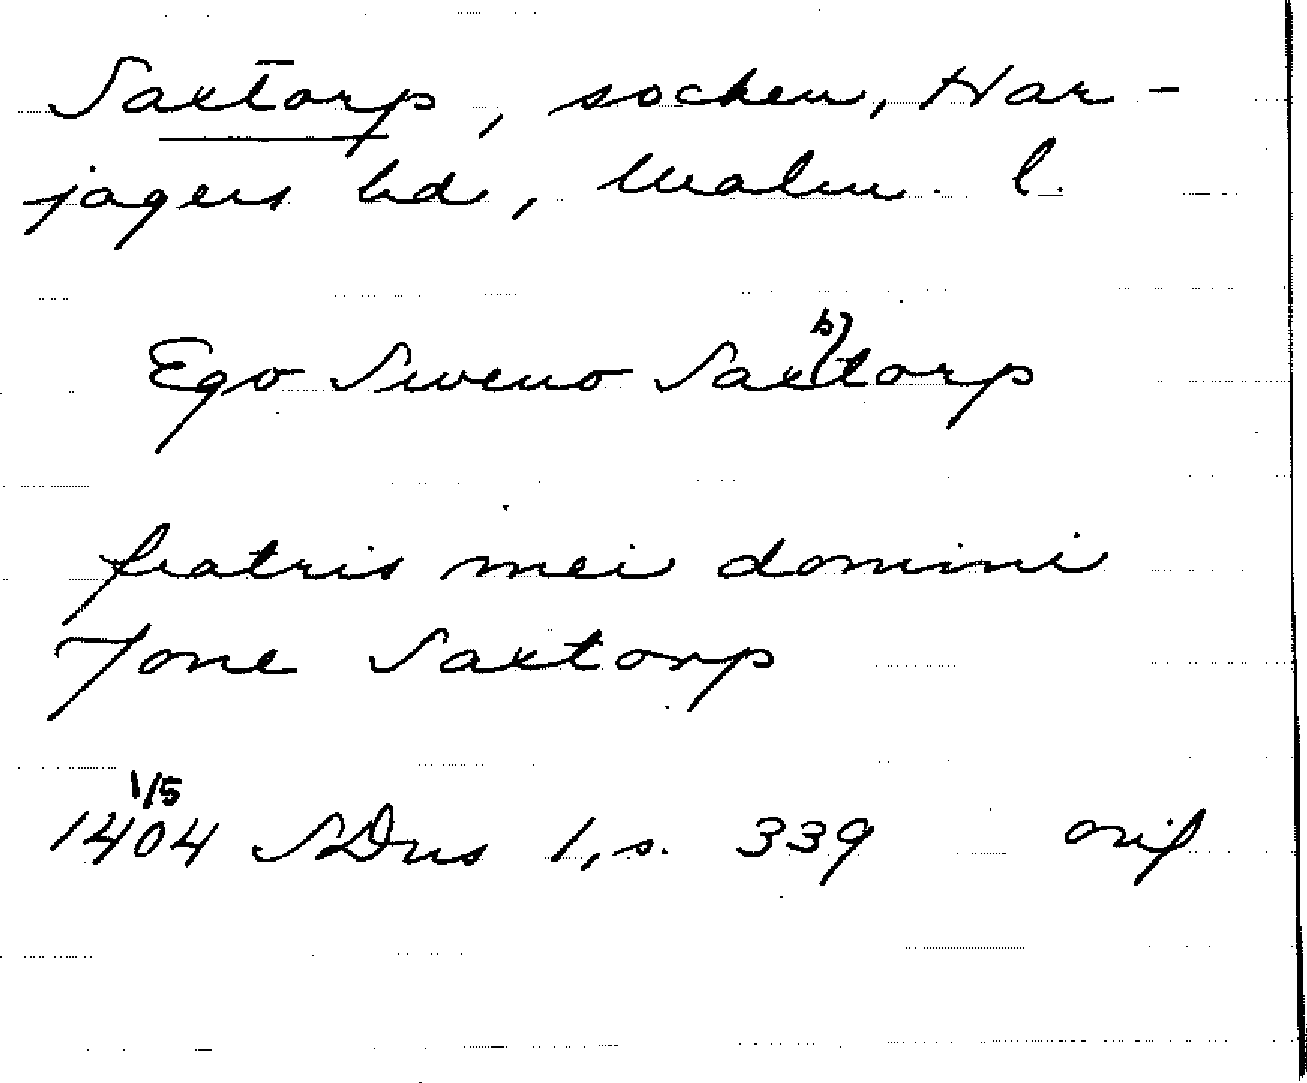 Saxtorp, socken, Har-
jagers hd, Malm. l.
Ego Sweno Sax(b)torp
fratris mei domini
Tone Saxtorp
1/5
1404 SDns 1, s. 339 orig